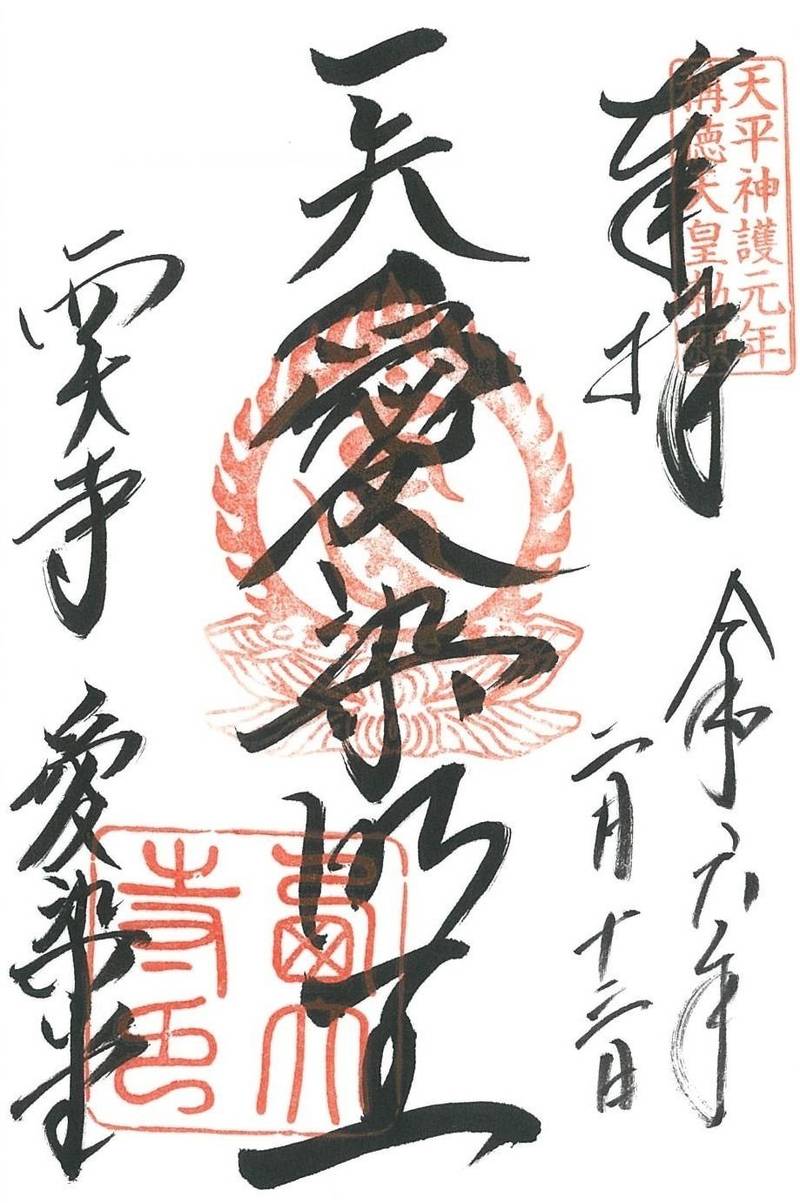 天平神護元年
稱徳天皇勅願
奉拝
令和六年
二月十二日
一矢愛染明王
西大寺
愛染堂
西大
寺印